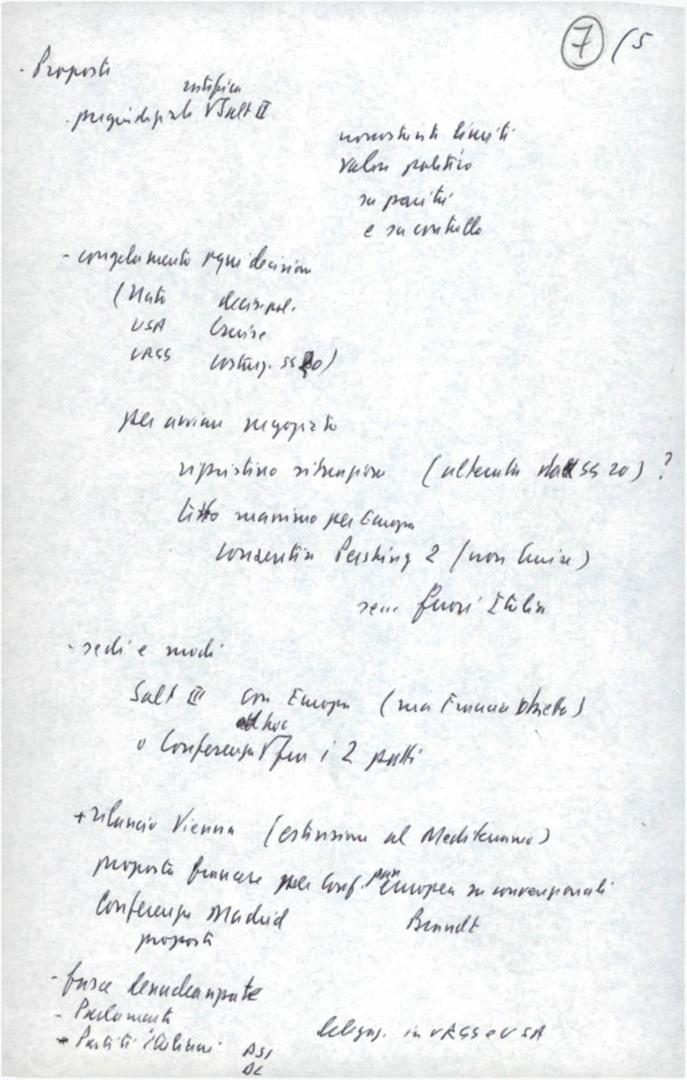 7 /5
- Proposte
ratifica
- pregiudiziale √ Salt II
nonostante limiti
valore politico
su parità
e su controllo
- congelamento ogni decisione
(Nato decis. pol.
USA Cruise
URSS costruz. SS 20)
per avviare negoziato
ripristino situazione (alterata dall SS 20) ?
tetto massimo per Europa
consentiti Pershing 2 (non Cruise)
fuori Italia
- sedi e modi
Salt III con Europa (ma Francia obietta)
ad hoc
o Conferenza √ fra i 2 patti
+ rilancio Vienna (estensione al Mediterraneo)
proposta francese per Conf. pan Europea su convenzionali
Conferenza Madrid Brandt
proposta
- fasce denuclearizzate
- Parlamento
- Partiti italiani PSI delegaz. in URSS e USA
DC